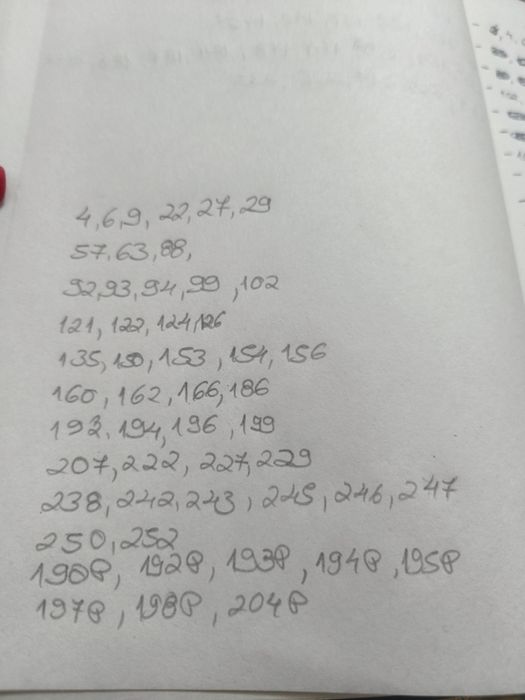 4, 6, 9, 22, 27, 29
57, 63, 88,
92, 93, 94, 99, 102
121, 122, 124, 126
135, 150, 153, 154, 156
160, 162, 166, 186
193, 194, 196, 199
207, 222, 227, 229
238, 242, 243, 245, 246, 247
250, 252
190P, 192P, 193P, 194P, 195P
197P, 198P, 204P